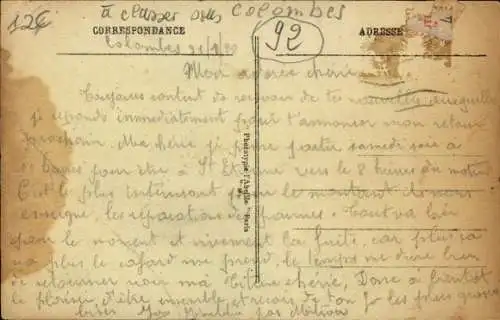 12€
à classer sous Colombes
92
CORRESPONDANCE
ADRESSE
Colombes 21/9/20
Mon adorée chérie
Toujours content de recevoir de tes nouvelles
je réponds immédiatement pour t'annoncer mon retour
prochain. Ma chérie je pense partir samedi soir à
pour être à St Etienne vers les 8 heures du matin
C'est le plus intéressant pour le montant de mon
les réparations de Tout va bien
pour le moment et vivement la fuite, car plus ça
va plus le cafard me prend le temps me dure bien
de retourner voir ma Titine chérie, Donc à bientôt
le plaisir d'être ensemble et reçois de ton Jo les plus grosses
bises
Phototypie l'Abeille - Paris